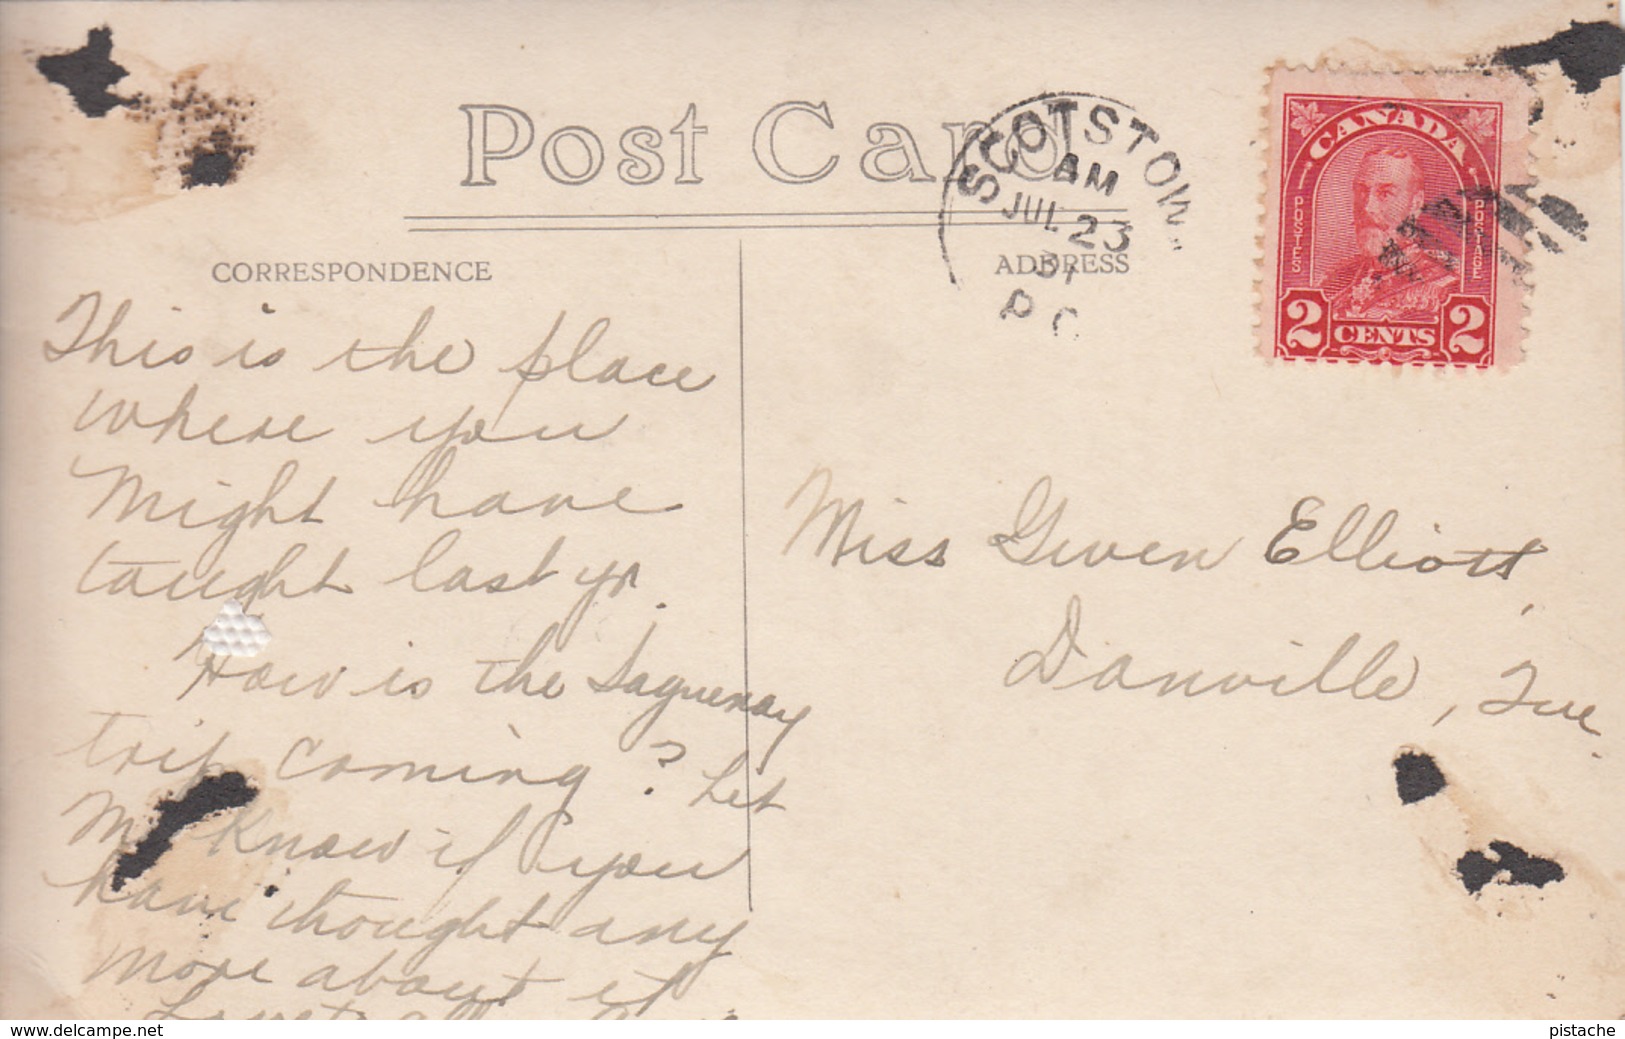 Post Card
SCOTSTOWN
AM
JUL 23
31
P.Q
CANADA
POSTES
POSTAGE
2 CENTS 2
CORRESPONDENCE
ADDRESS
This is the place
where you
might have
taught last yr.
How is the Saguenay
trip coming? Let
me know if you
have thought any
more about it
Love to all
Miss Gwen Elliott,
Danville, Que.
www.delcampe.net
pistache